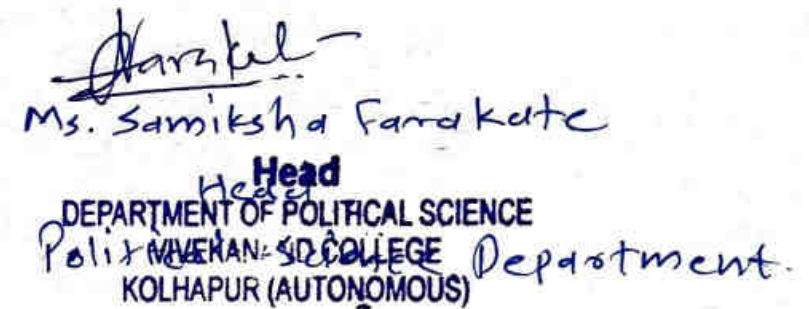 Ms. Samiksha Farakate
Head
Head
DEPARTMENT OF POLITICAL SCIENCE
Political Science Department.
VIVEKANAND COLLEGE
KOLHAPUR (AUTONOMOUS)